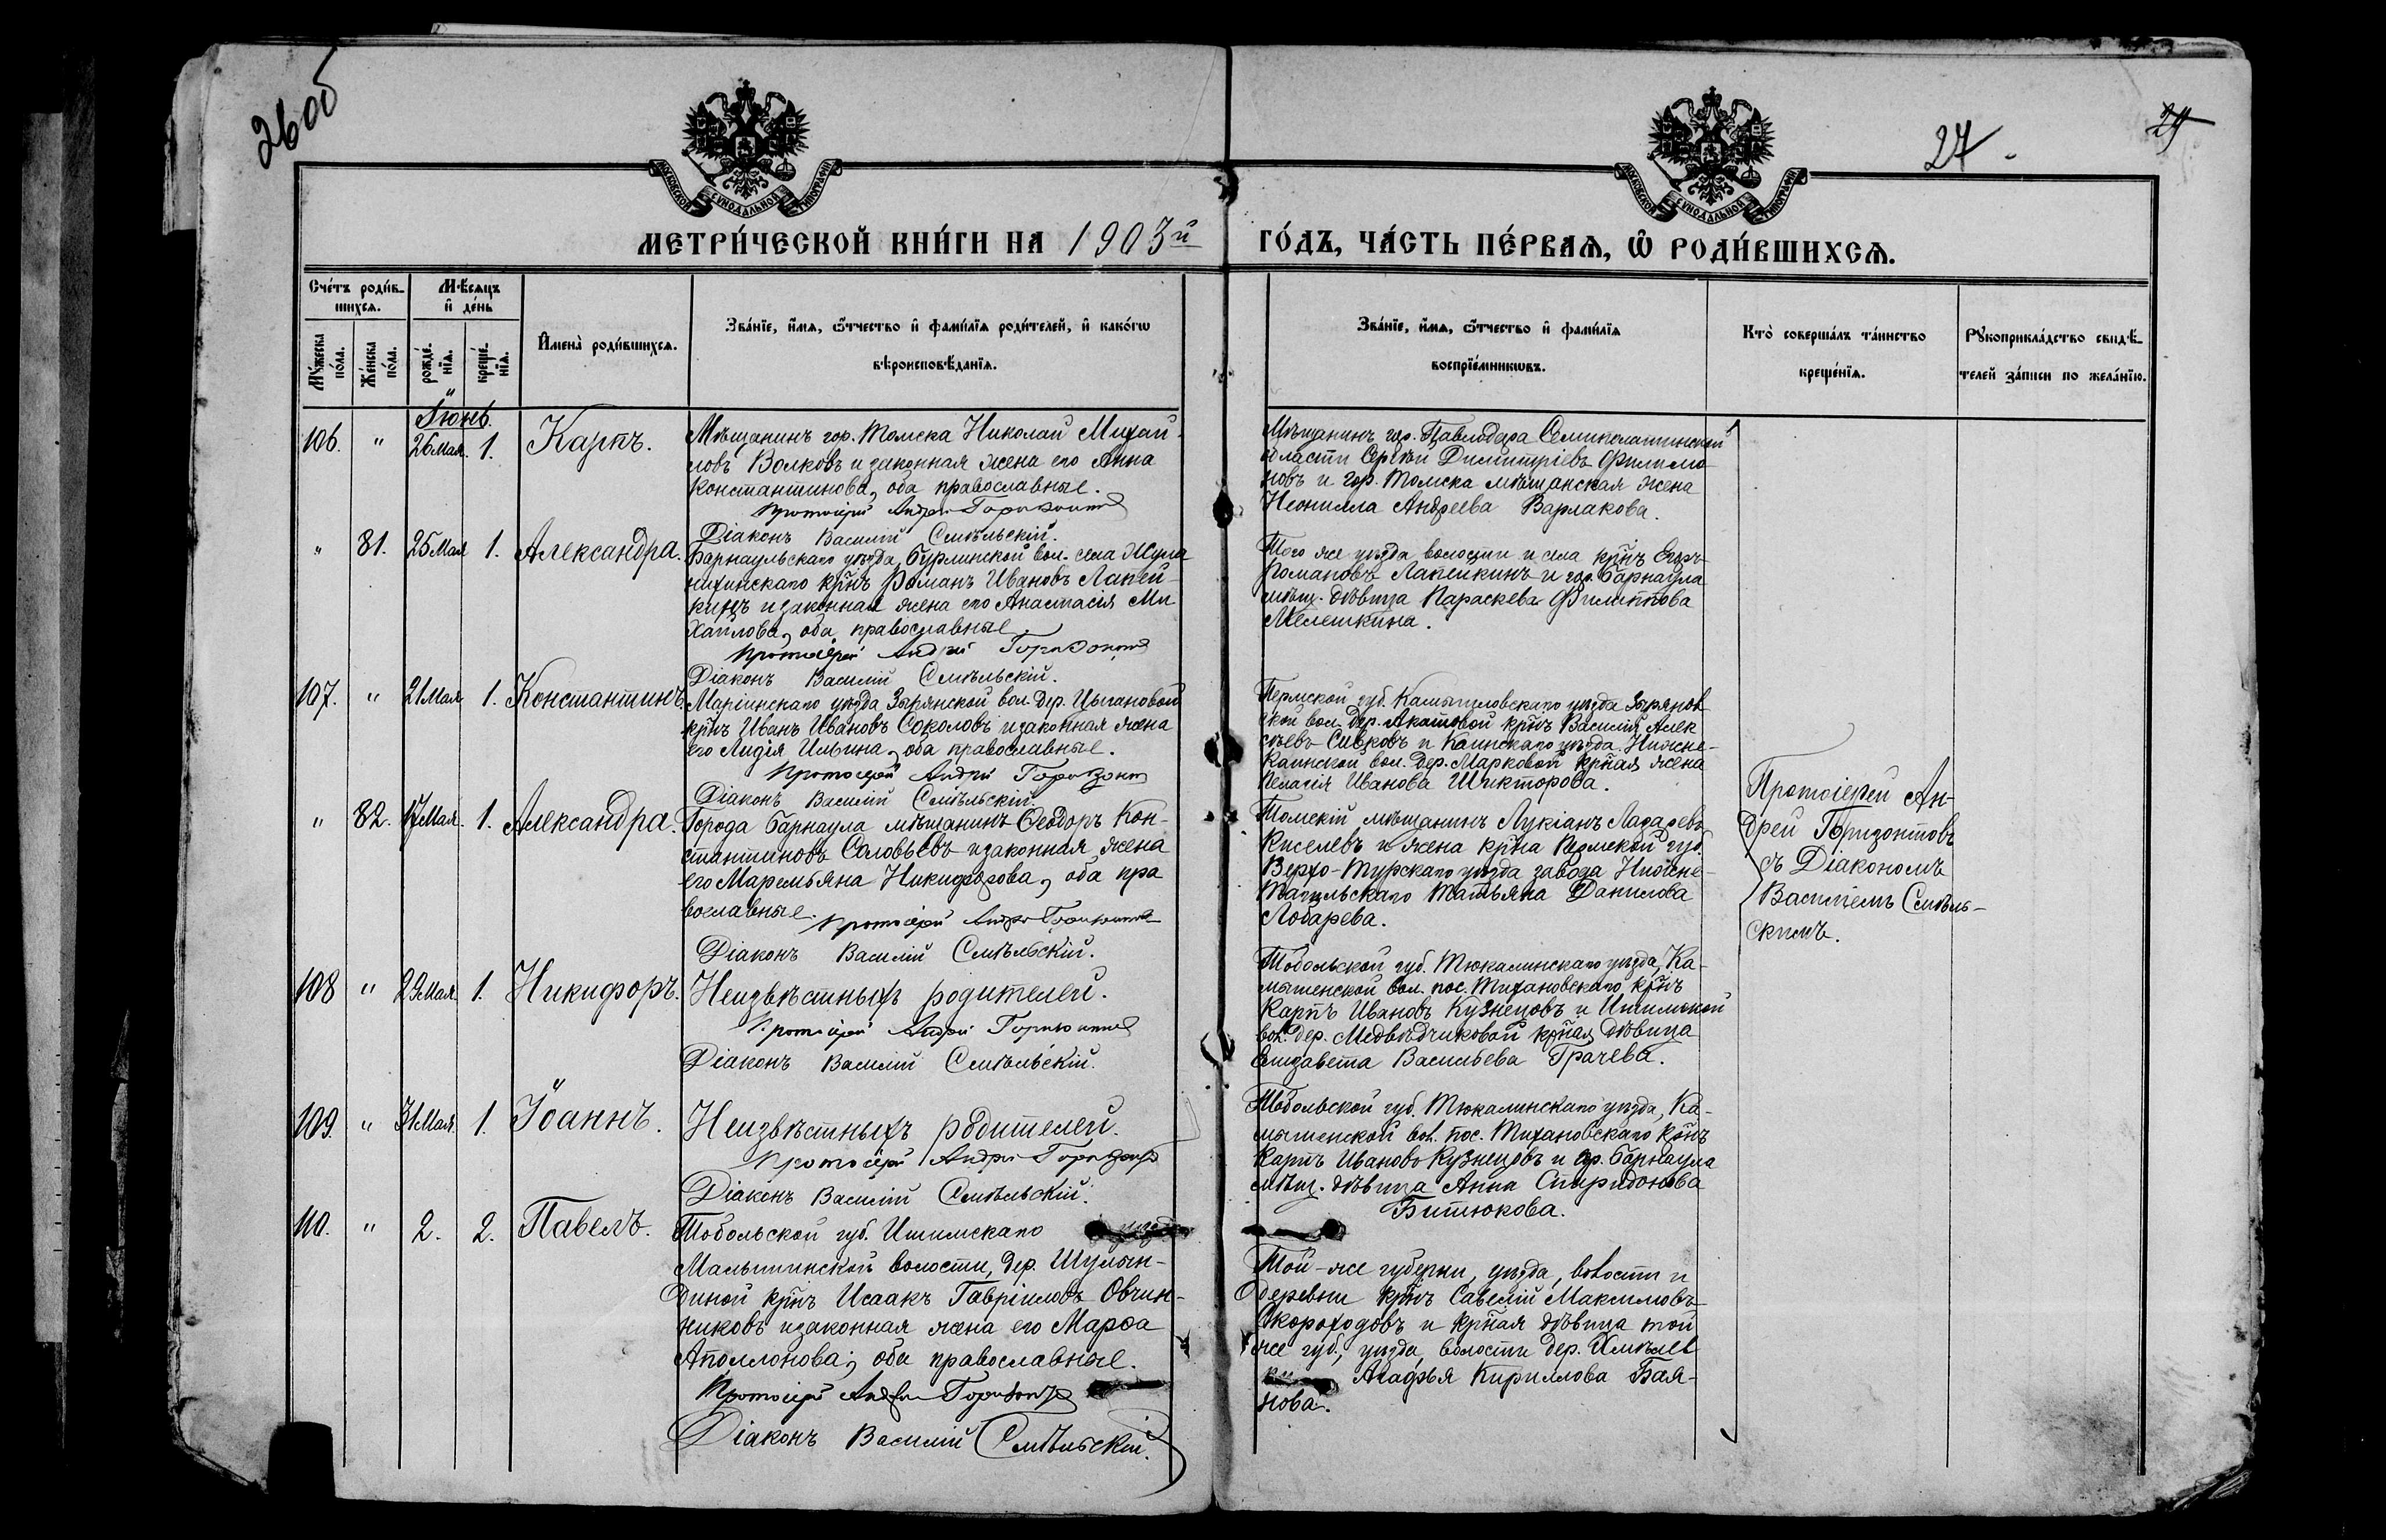 26об
27
29
МОСКОВСКОЙ СѴНОДАЛЬНОЙ ТИПОГРАФІИ
МОСКОВСКОЙ СѴНОДАЛЬНОЙ ТИПОГРАФІИ
МЕТРИ́ЧЕСКОЙ КНИ́ГИ НА 1903й ГО́ДЪ, ЧА́СТЬ ПЕ́РВАѦ, Ѽ РОДИ́ВШИХСѦ.
Сче́тъ роди́в-
шихсѧ.
Му́жеска по́ла.
Же́нска по́ла.
Мѣ́сяцъ
и҆ де́нь
рожде́-
нїѧ.
креще́-
нїѧ.
И҆мена̀ роди́вшихсѧ.
Зва́нїе, и҆́мѧ, ѻ҆́тчество и҆ фами́лїѧ роди́телей, и҆ како́гѡ
вѣроисповѣ́данїѧ.
Зва́нїе, и҆́мѧ, ѻ҆́тчество и҆ фами́лїѧ
воспрїе́мникѡвъ.
Кто̀ соверша́лъ та́инство
креще́нїѧ.
Рꙋкоприкла́дство свидѣ́-
телей за́писи по жела́нїю.
Іюнь.
106. " 26 Мая. 1. Карпъ.
Мѣщанинъ гор. Томска Николай Михай-
ловъ Волковъ и законная жена его Анна
Константинова, оба православные.
Протоіерей Андрей Горизонтовъ
Діаконъ Василій Смѣльскій.
Мѣщанинъ гор. Павлодара Семипалатинской
области Сергѣй Димитріевъ Филимо-
новъ и гор. Томска мѣщанская жена
Неонилла Андреева Варлакова.
" 81. 25 Мая 1. Александра.
Барнаульскаго уѣзда, Бурлинской вол. села
крнъ Романъ Ивановъ Лапей-
кинъ и законная жена его Анастасія Ми
хайлова, оба православные.
Протоіерей Андрей Горизонтовъ
Діаконъ Василій Смѣльскій.
Того же уѣзда волости и села крнъ Егоръ
Романовъ Лапейкинъ и гор. Барнаула
мѣщ. дѣвица Параскева Филиппова
Мелешкина.
107. " 21 Мая 1. Константинъ.
Маріинскаго уѣзда Зырянской вол. дер. Цыгановой
крнъ Иванъ Ивановъ Соколовъ и законная жена
его Лидія Ильина, оба православные.
Протоіерей Андрей Горизонтовъ
Діаконъ Василій Смѣльскій.
Пермской губ. Камышловскаго уѣзда Зырянов
ской вол. дер. Акатовой крнъ Василій Алек
сѣевъ Сивковъ и Каинскаго уѣзда Нижне-
Каинской вол. дер. Марковой крная жена
Пелагія Иванова Шикторова.
" 82. 17 Мая. 1. Александра.
Города Барнаула мѣщанинъ Ѳеодоръ Кон-
стантиновъ Соловьевъ и законная жена
его Маремьяна Никифорова, оба пра
вославные.
Протоіерей Андрей Горизонтовъ
Діаконъ Василій Смѣльскій.
Томскій мѣщанинъ Лукіанъ Лазаревъ
Киселевъ и жена крна Пермской губ.
Верхо-Турскаго уѣзда завода Нижне-
Тагильскаго Татьяна Данилова
Лобарева.
Протоіерей Ан-
дрей Горизонтовъ
съ Діакономъ
Василіемъ Смѣль-
скимъ.
108 " 29 Мая. 1. Никифоръ.
Неизвѣстныхъ родителей.
Протоіерей Андрей Горизонтовъ
Діаконъ Василій Смѣльскій.
Тобольской губ. Тюкалинскаго уѣзда, Ка-
мышенской вол. пос. Тихановскаго крнъ
Карпъ Ивановъ Кузнецовъ и Ишимской
вол. дер. Медвѣдчиковой крная дѣвица
Елизавета Васильева Грачева.
109. " 31 Мая. 1. Іоаннъ.
Неизвѣстныхъ родителей.
Протоіерей Андрей Горизонтовъ
Діаконъ Василій Смѣльскій.
Тобольской губ. Тюкалинскаго уѣзда, Ка-
мышенской вол. пос. Тихановскаго крнъ
Карпъ Ивановъ Кузнецовъ и гр. Барнаула
мѣщ. дѣвица Анна Спиридонова
Битюкова.
110. " 2. 2. Павелъ.
Тобольской губ. Ишимскаго уѣзда
Малышинской волости, дер. Шулын-
диной крнъ Исаакъ Гавріиловъ Овчин-
никовъ и законная жена его Марѳа
Аполлонова; оба православные.
Протоіерей Андрей Горизонтовъ
Діаконъ Василій Смѣльскій.
Той-же губерни, уѣзда, волости и
деревни крнъ Савелій Максимовъ
Скороходовъ и крная дѣвица той
же губ., уѣзда, волости дер.
Агафья Кириллова Бая-
нова.